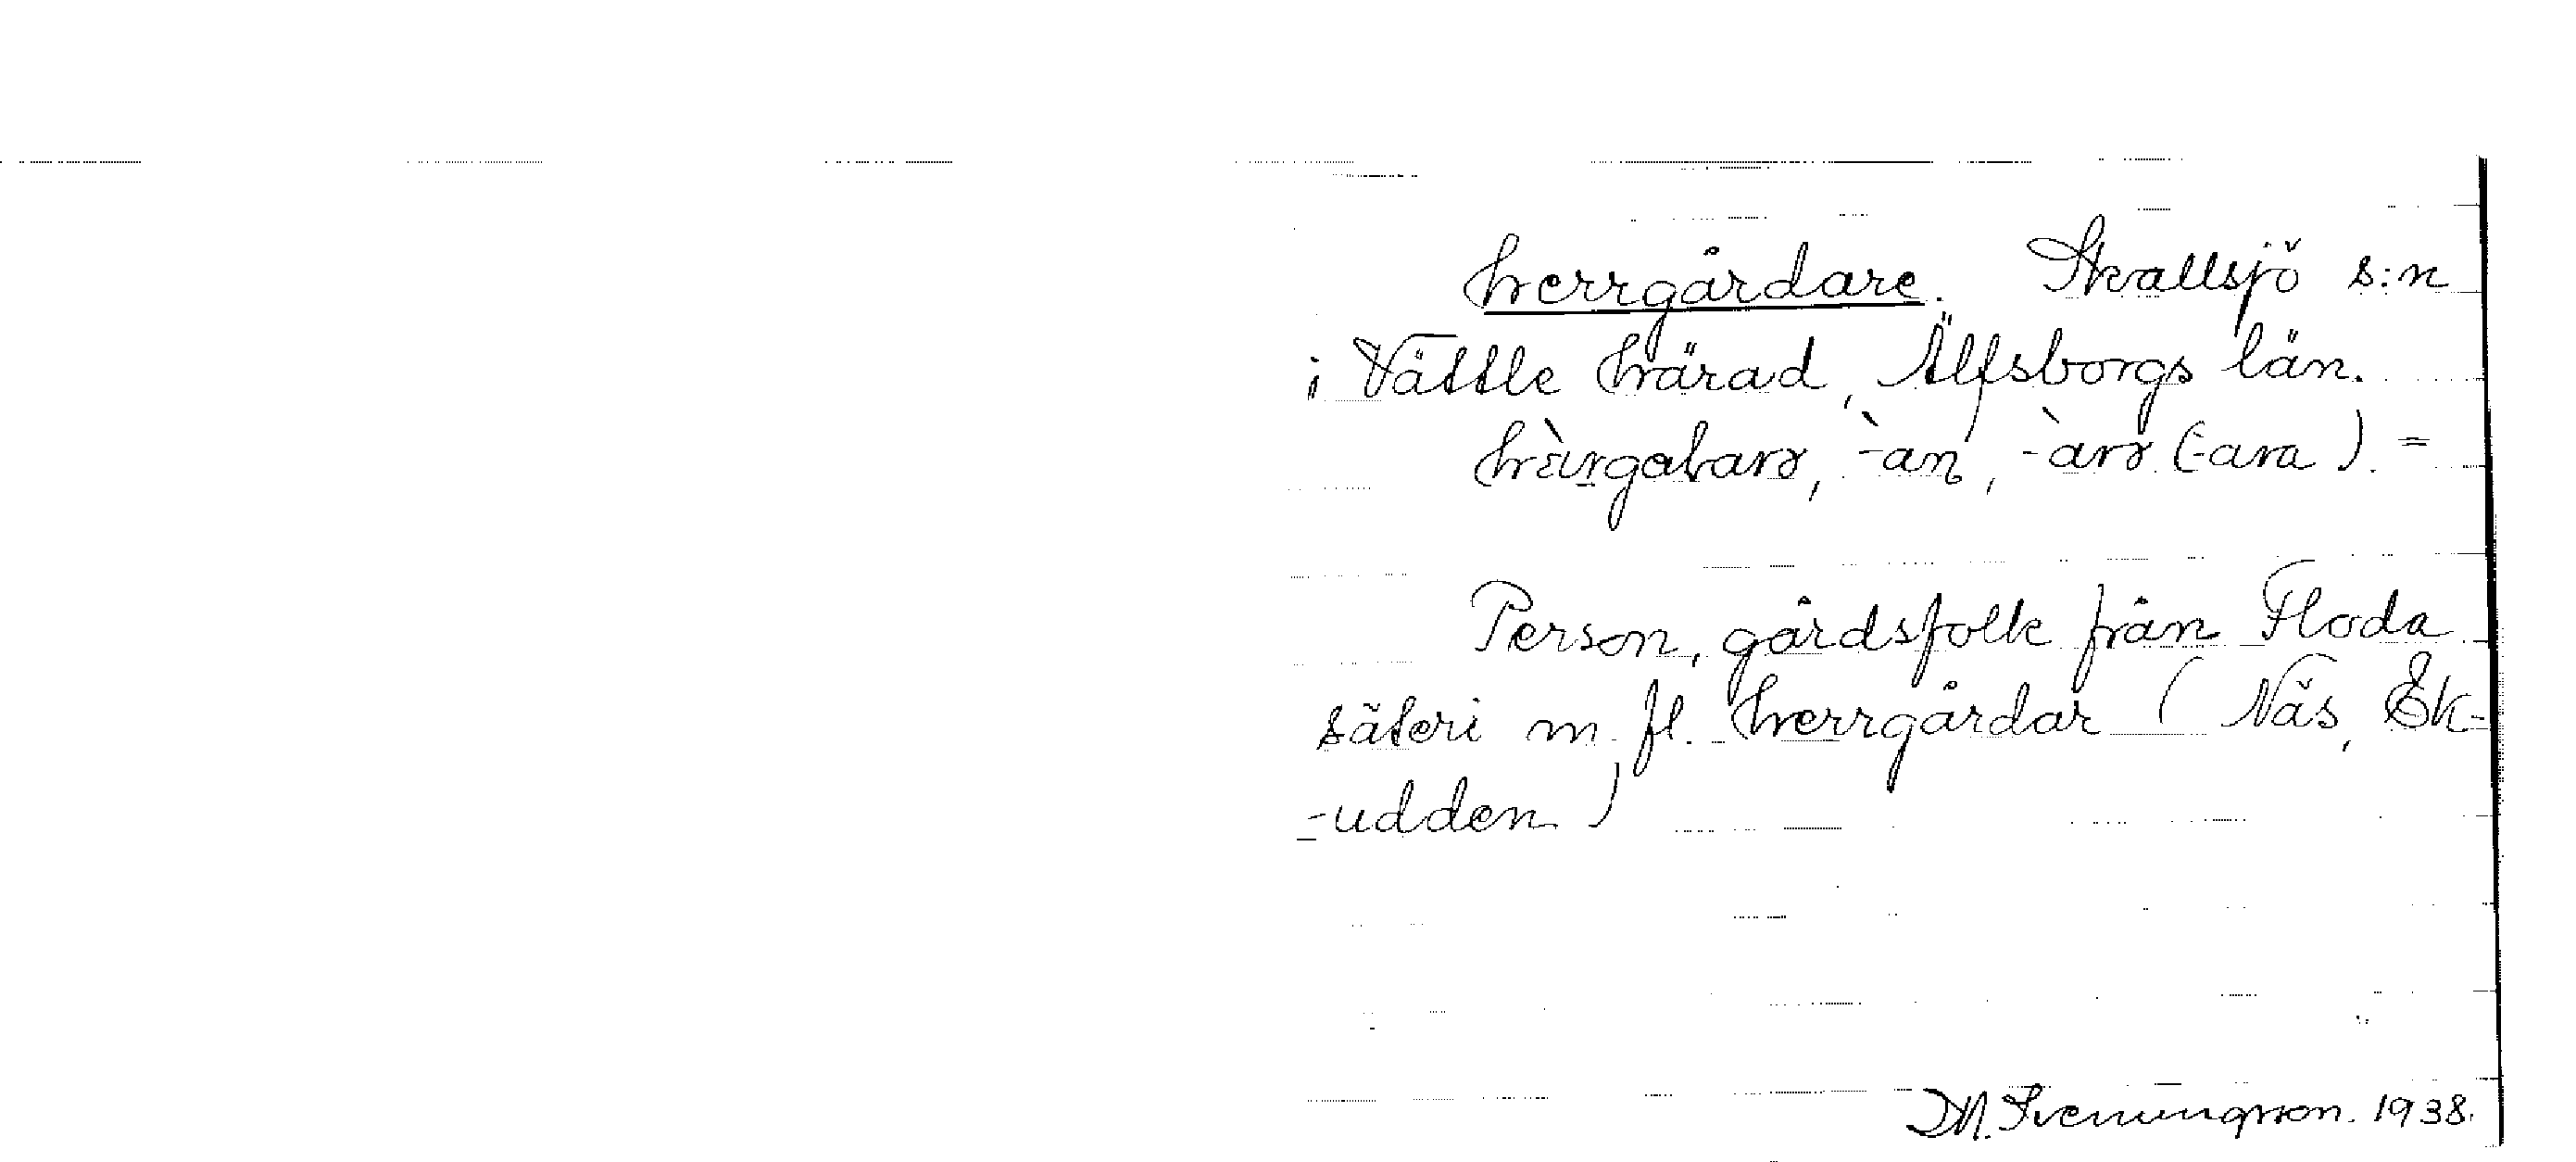 herrgårdare. Skallsjö s:n
i Vättle härad, Älfsborgs län.
-an, (-ara). =
Person, gårdsfolk från Floda
säteri m. fl. herrgårdar (Näs, Ek-
-udden)
M. Sveningsson. 1938.